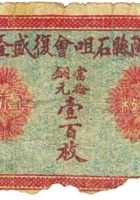 縣石咀會復盛
當拾
銅元
壹百枚